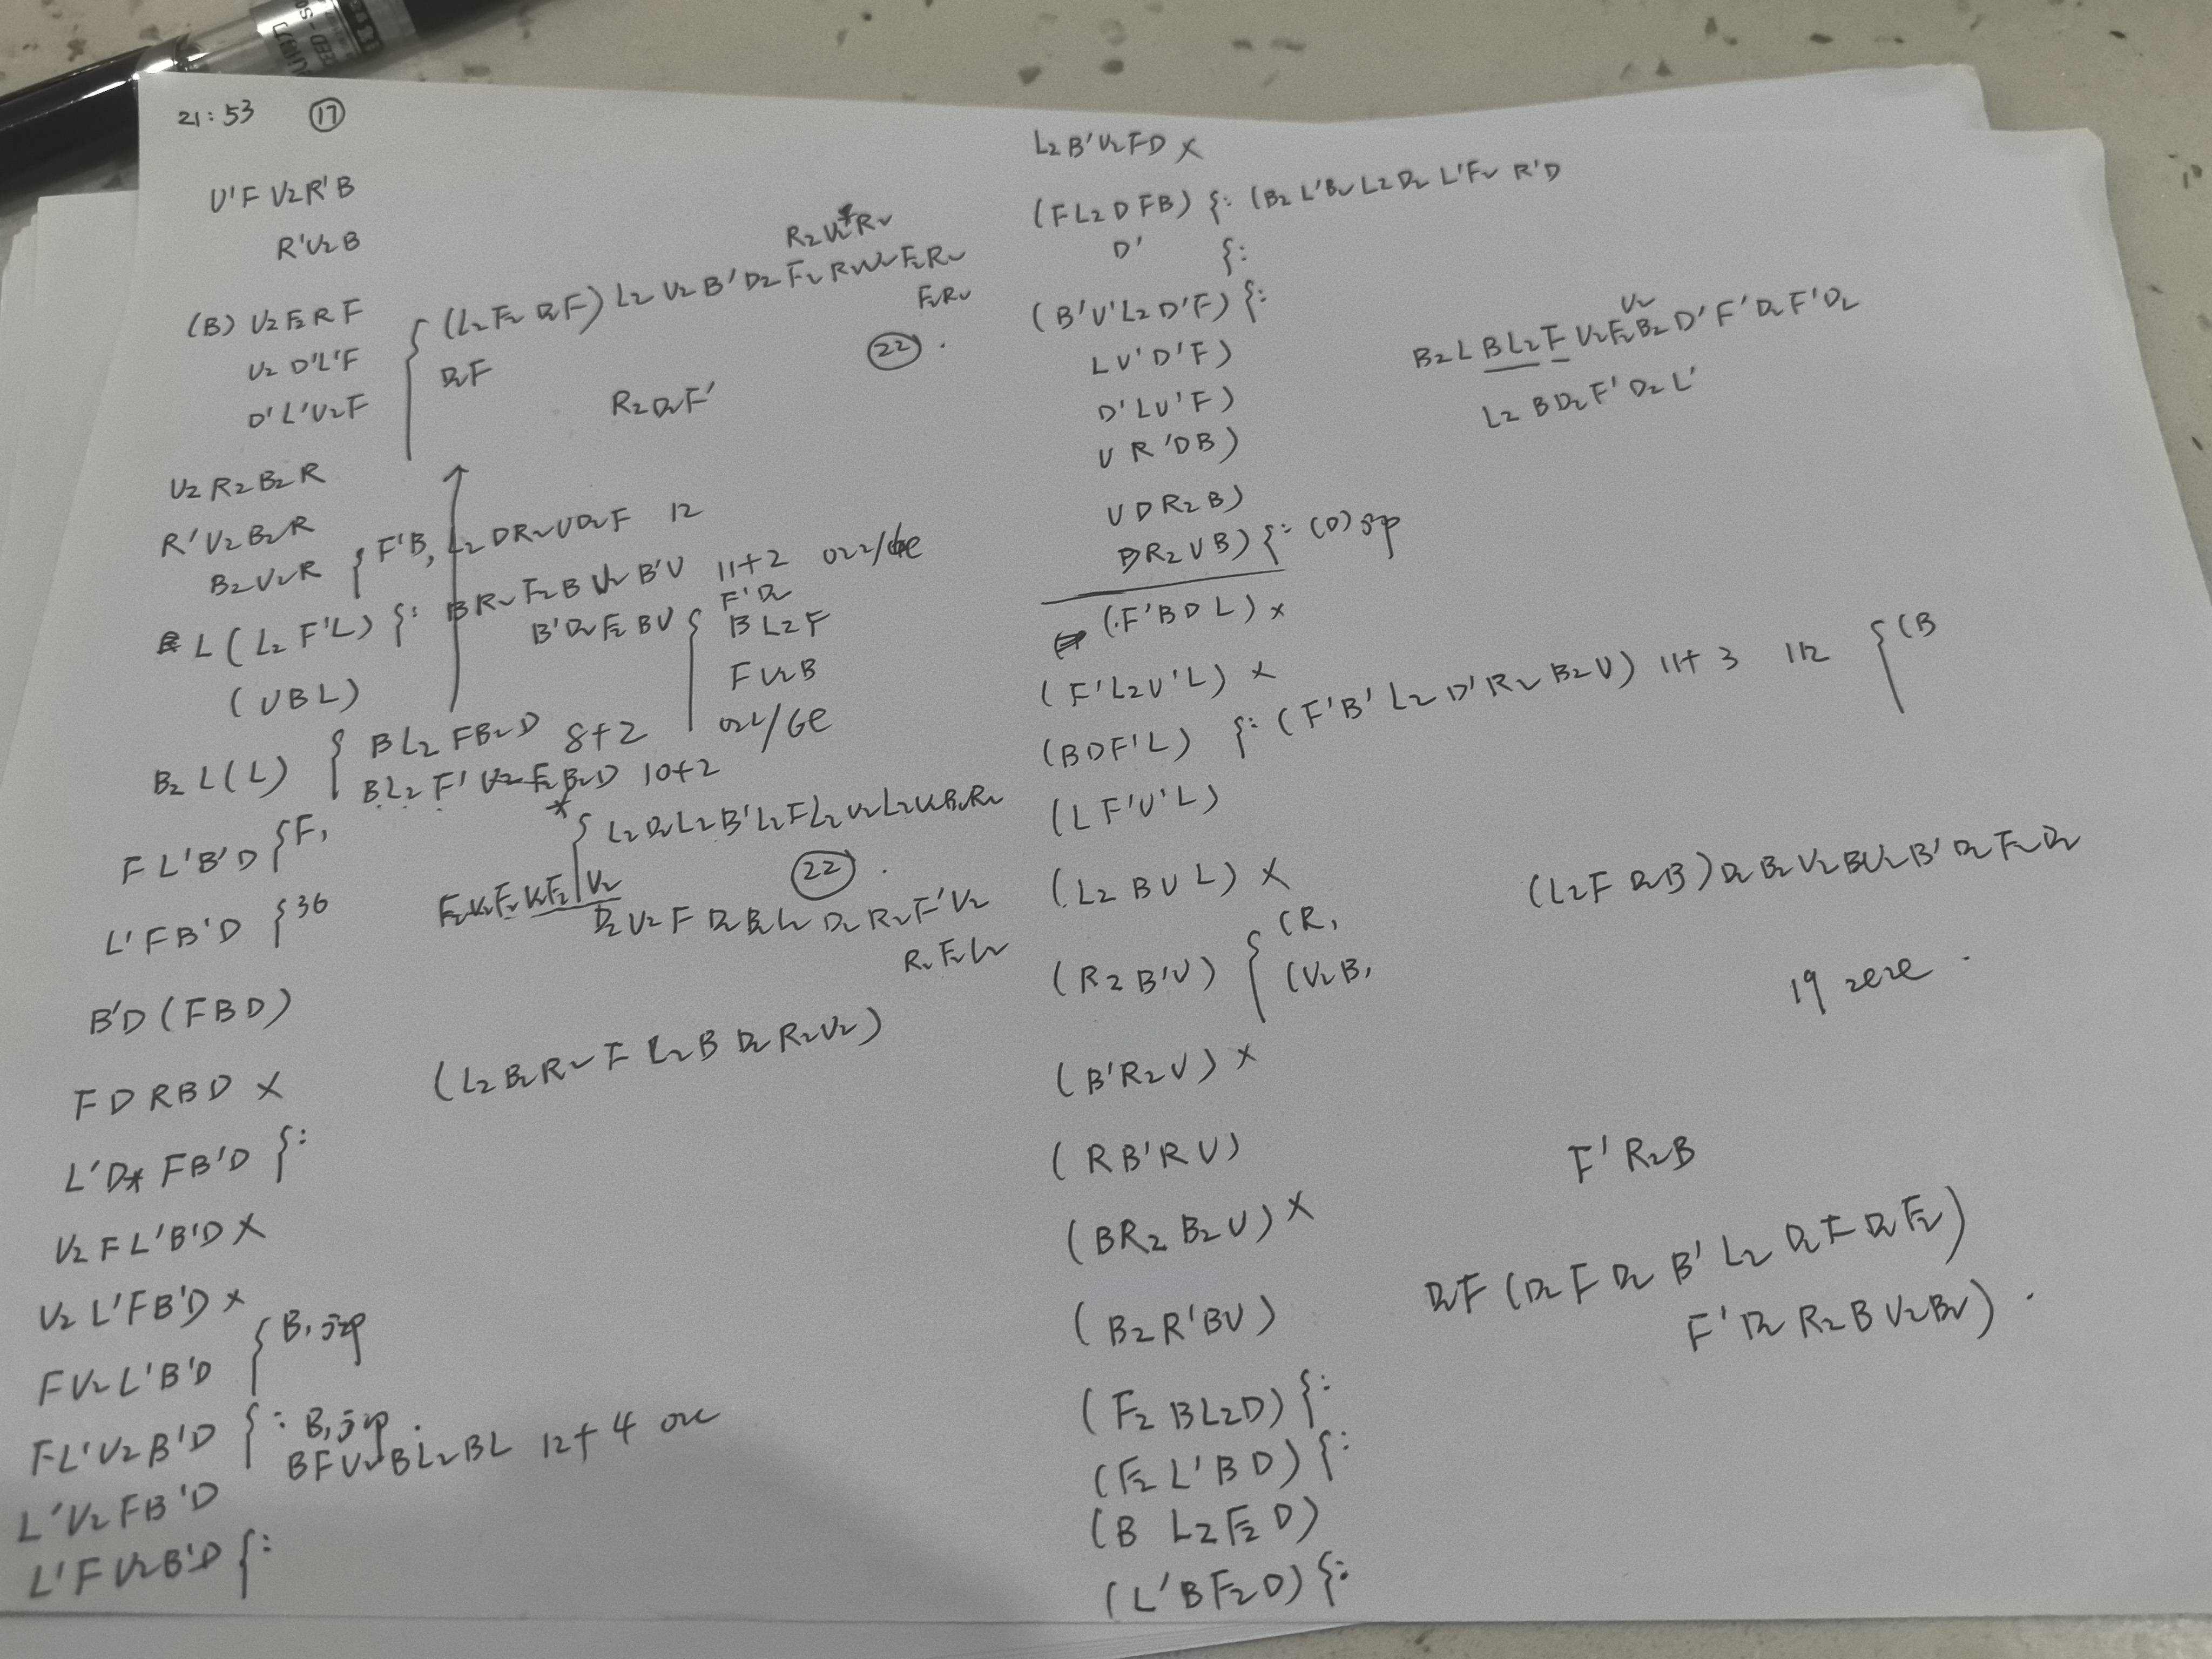 21:53 ⑰
U'F U2R'B
R'U2B
(B) U2F2RF
U2 D'L'F
D'L'U2F
(L2F2 D2F) L2 U2B'D2F2
R2D2F'
D2F
㉒.
U2R2B2R
R'U2B2R
B2U2R
F'B, L2DR2UD2F 12
L(L2F'L) {: BR2F2BU2B'U 11+2
B'D2F2BU
F'D2
BL2F
FU2B
(UBL)
B2L(L)
BL2FB2D 8+2
BL2F'U2F2B2D 10+2
FL'B'D {F,
L'FB'D {36
L2D2L2B'L2FL2U2L2
㉒.
D2U2FD2B2L2D2R2F'U2
R2F2L2
B'D(FBD)
(L2B2R2FL2BD2R2U2)
FDRBD X
L'D* FB'D {:
U2FL'B'D X
U2L'FB'D X
FU2L'B'D
FL'U2B'D
BFU2BL2BL 12+4
L'U2FB'D
L'FU2B'D {:
L2B'U2FD X
(FL2DFB) {: (B2L'B2L2D2L'F2R'D
D' {:
(B'U'L2D'F) {:
LU'D'F)
D'LU'F)
UR'DB)
U2
B2LBL2FU2F2B2D'F'D2F'D2
L2BD2F'D2L'
UDR2B)
DR2UB) {: (D)
(F'BDL) X
(F'L2U'L) X
(BDF'L) {: (F'B'L2D'R2B2U) 11+3 112 {(B
(LF'U'L)
(L2BUL) X
(L2FD2B)D2B2U2BU2B'D2F2D2
(R2B'U) {(R,
(U2B,
19
(B'R2U) X
(RB'RU)
F'R2B
(BR2B2U) X
(B2R'BU)
D2F(D2FD2B'L2D2FD2F2)
F'D2R2BU2B2).
(F2BL2D) {:
(F2L'BD) {:
(BL2F2D)
(L'BF2D) {: